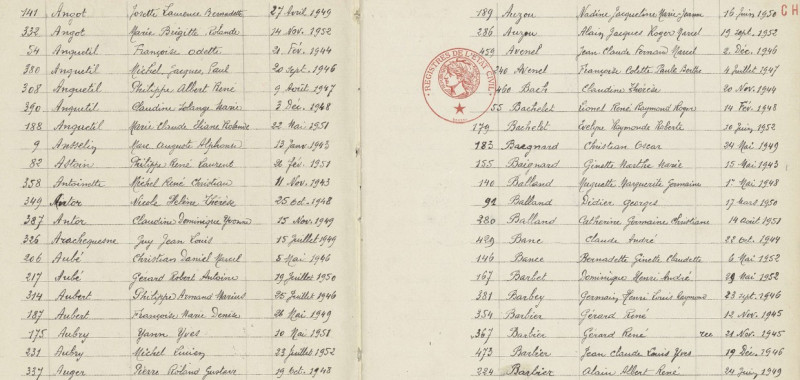 141 Angot Josette Laurence Bernadette 27 Avril 1949
332 Angot Marie Brigitte Rolande 14 Nov. 1952
54 Anquetil Françoise Odette 21 Fév. 1944
380 Anquetil Michel, Jacques, Paul 20 sept. 1946
308 Anquetil Philippe Albert René 9 Août 1947
390 Anquetil Claudine Solange Marie 3 Déc. 1948
188 Anquetil Marie Claude Liliane 22 Mai 1951
9 Ansselin Marc Auguste Alphonse 13 Janv. 1943
82 Philippe René Laurent Fév. 1951
358 Antoinette Michel René Christian 11 Nov. 1943
349 Nicole Hélène Thérèse 25 oct. 1948
387 Antor Claudine Dominique Yvonne 15 Nov. 1949
226 Arachequesne Guy Jean Louis 15 Juillet 1949
206 Aubé Christian Daniel Marcel 5 Mai 1946
217 Aubé Gérard Robert Antoine 19 Juillet 1950
314 Aubert Philippe Armand Marius 25 Juillet 1946
187 Aubert Françoise Marie Denise 26 Mai 1949
175 Aubry Yann Yves 10 Mai 1951
231 Aubry Michel Lucien 23 Juillet 1952
337 Auger Pierre Roland Gustave 19 Oct. 1948
CH
189 Auzou Nadine Jacqueline Marie Jeanne 16 Juin 1950
286 Auzou Alain Jacques Roger Marcel 19 sept. 1952
459 Avenel Jean Claude Fernand Marcel 2 Déc. 1946
240 Avenel Françoise Colette Paule Berthe 4 Juillet 1947
REGISTRES DE L'ETAT CIVIL
460 Bach Claudine Thérèse 20 Nov. 1944
55 Bachelet Lionel René Raymond Roger 14 Fév. 1948
179 Bachelet Evelyne Raymonde Roberte 20 Juin 1952
183 Baegnard Christian Oscar 24 Mai 1949
155 Baignard Ginette Marthe Marie 15 Mai 1943
140 Balland Muguette Marguerite Germaine 1er Mai 1948
92 Balland Didier Georges 17 Mars 1950
280 Balland Catherine Germaine Christiane 14 Août 1951
429 Banc Claude André 22 oct. 1944
146 Banse Bernadette Ginette Claudette 6 Mai 1952
167 Barbet Dominique Henri André 29 Mai 1952
381 Barbey Germain, Henri Louis Raymond 23 sept. 1946
354 Barbier Gérard René 12 Nov. 1945
367 Barbier Gérard René rec 21 Nov. 1945
473 Barbier Jean Claude Louis Yves 19 Déc. 1946
224 Barbier Alain Albert René 24 Juin 1949